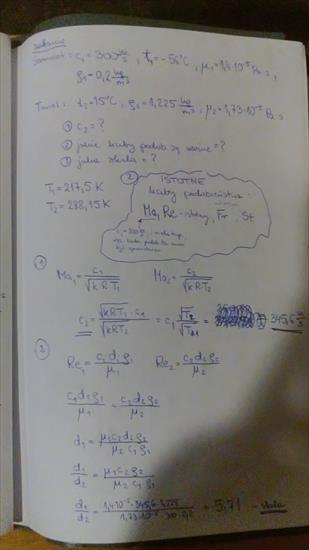 zadanie
samolot: c₁ = 300 m/s, t₁ = -56°C, μ₁ = 1,4·10⁻⁵ Pa·s,
ρ₁ = 0,2 kg/m³
Tunel: t₂ = 15°C, ρ₂ = 1,225 kg/m³, μ₂ = 1,73·10⁻⁵ Pa·s
① c₂ = ?
② jakie liczby podob. są ważne = ?
③ jaka skala = ?
T₁ = 217,5 K
T₂ = 288,15 K
② ISTOTNE
liczby podobieństwa:
Ma, Re - istotny, Fr, St
①
Ma₁ = c₁/√(kRT₁) Ma₂ = c₂/√(kRT₂)
c₂ = √(kRT₂)·c₁/√(kRT₁) = c₁ √T₂/√T₁ = 345,6 m/s
③
Re₁ = c₁d₁ρ₁/μ₁ Re₂ = c₂d₂ρ₂/μ₂
c₁d₁ρ₁/μ₁ = c₂d₂ρ₂/μ₂
d₁ = μ₁c₂d₂ρ₂/μ₂c₁ρ₁
d₁/d₂ = μ₁c₂ρ₂/μ₂c₁ρ₁
d₁/d₂ = 1,4·10⁻⁵·345,6·1,225/1,73·10⁻⁵·300·0,2 = 5,71 - skala